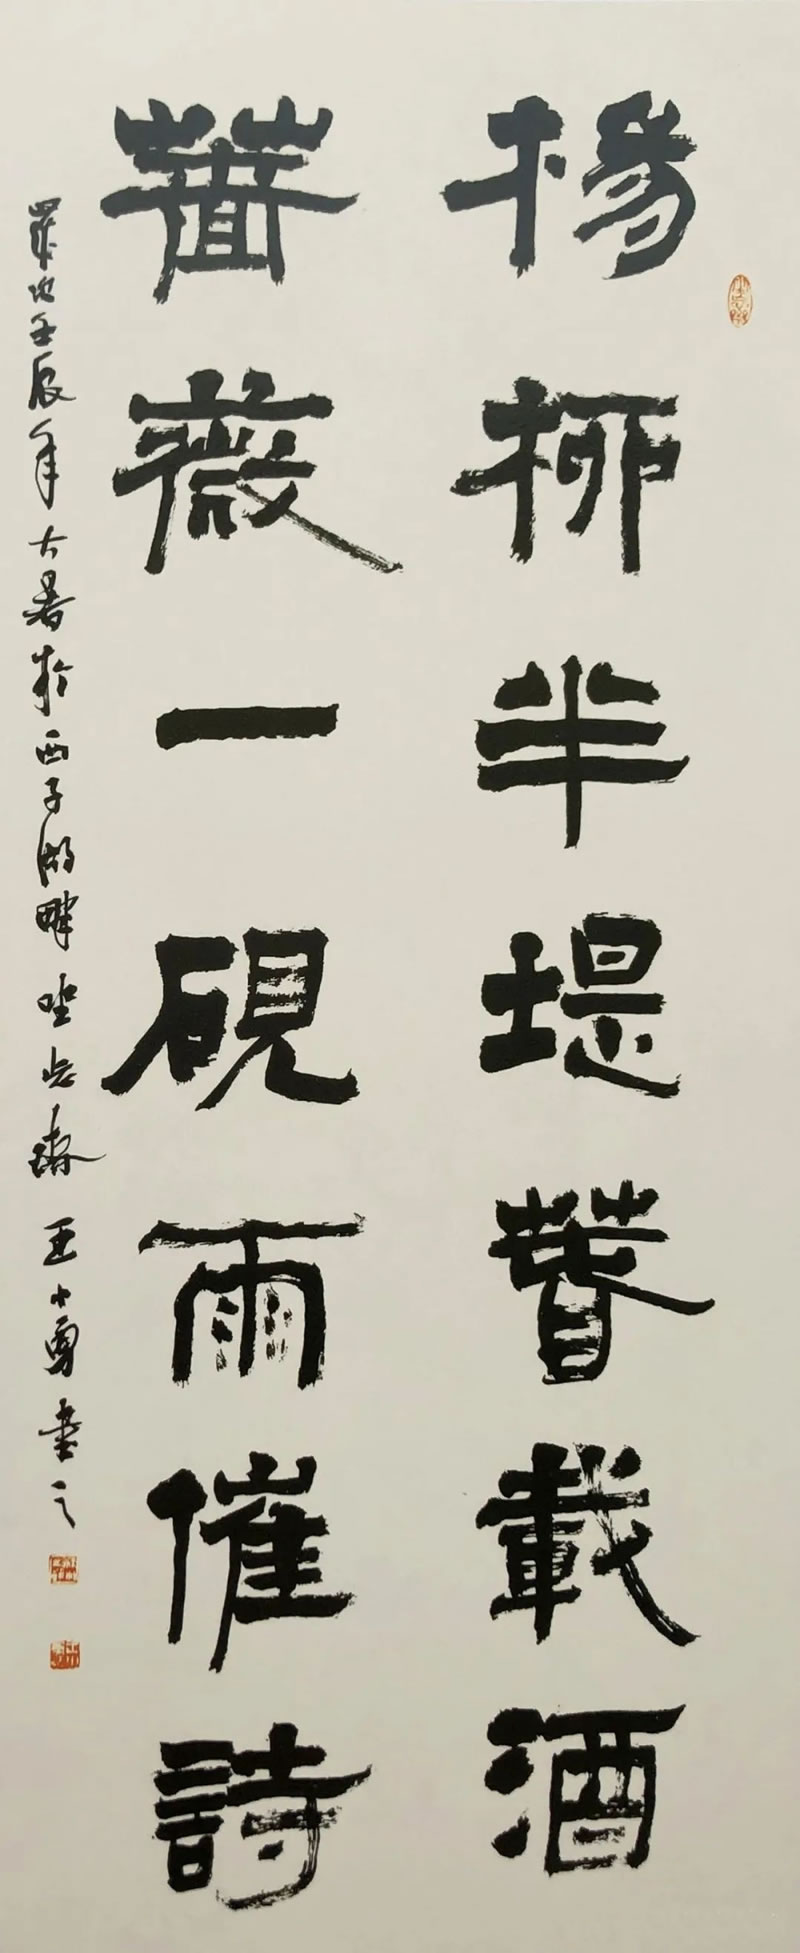 楊柳半堤萅載酒
薔薇一硯雨催詩
歲次壬辰年大暑於西子湖畔坐忘齋 王小勇書之